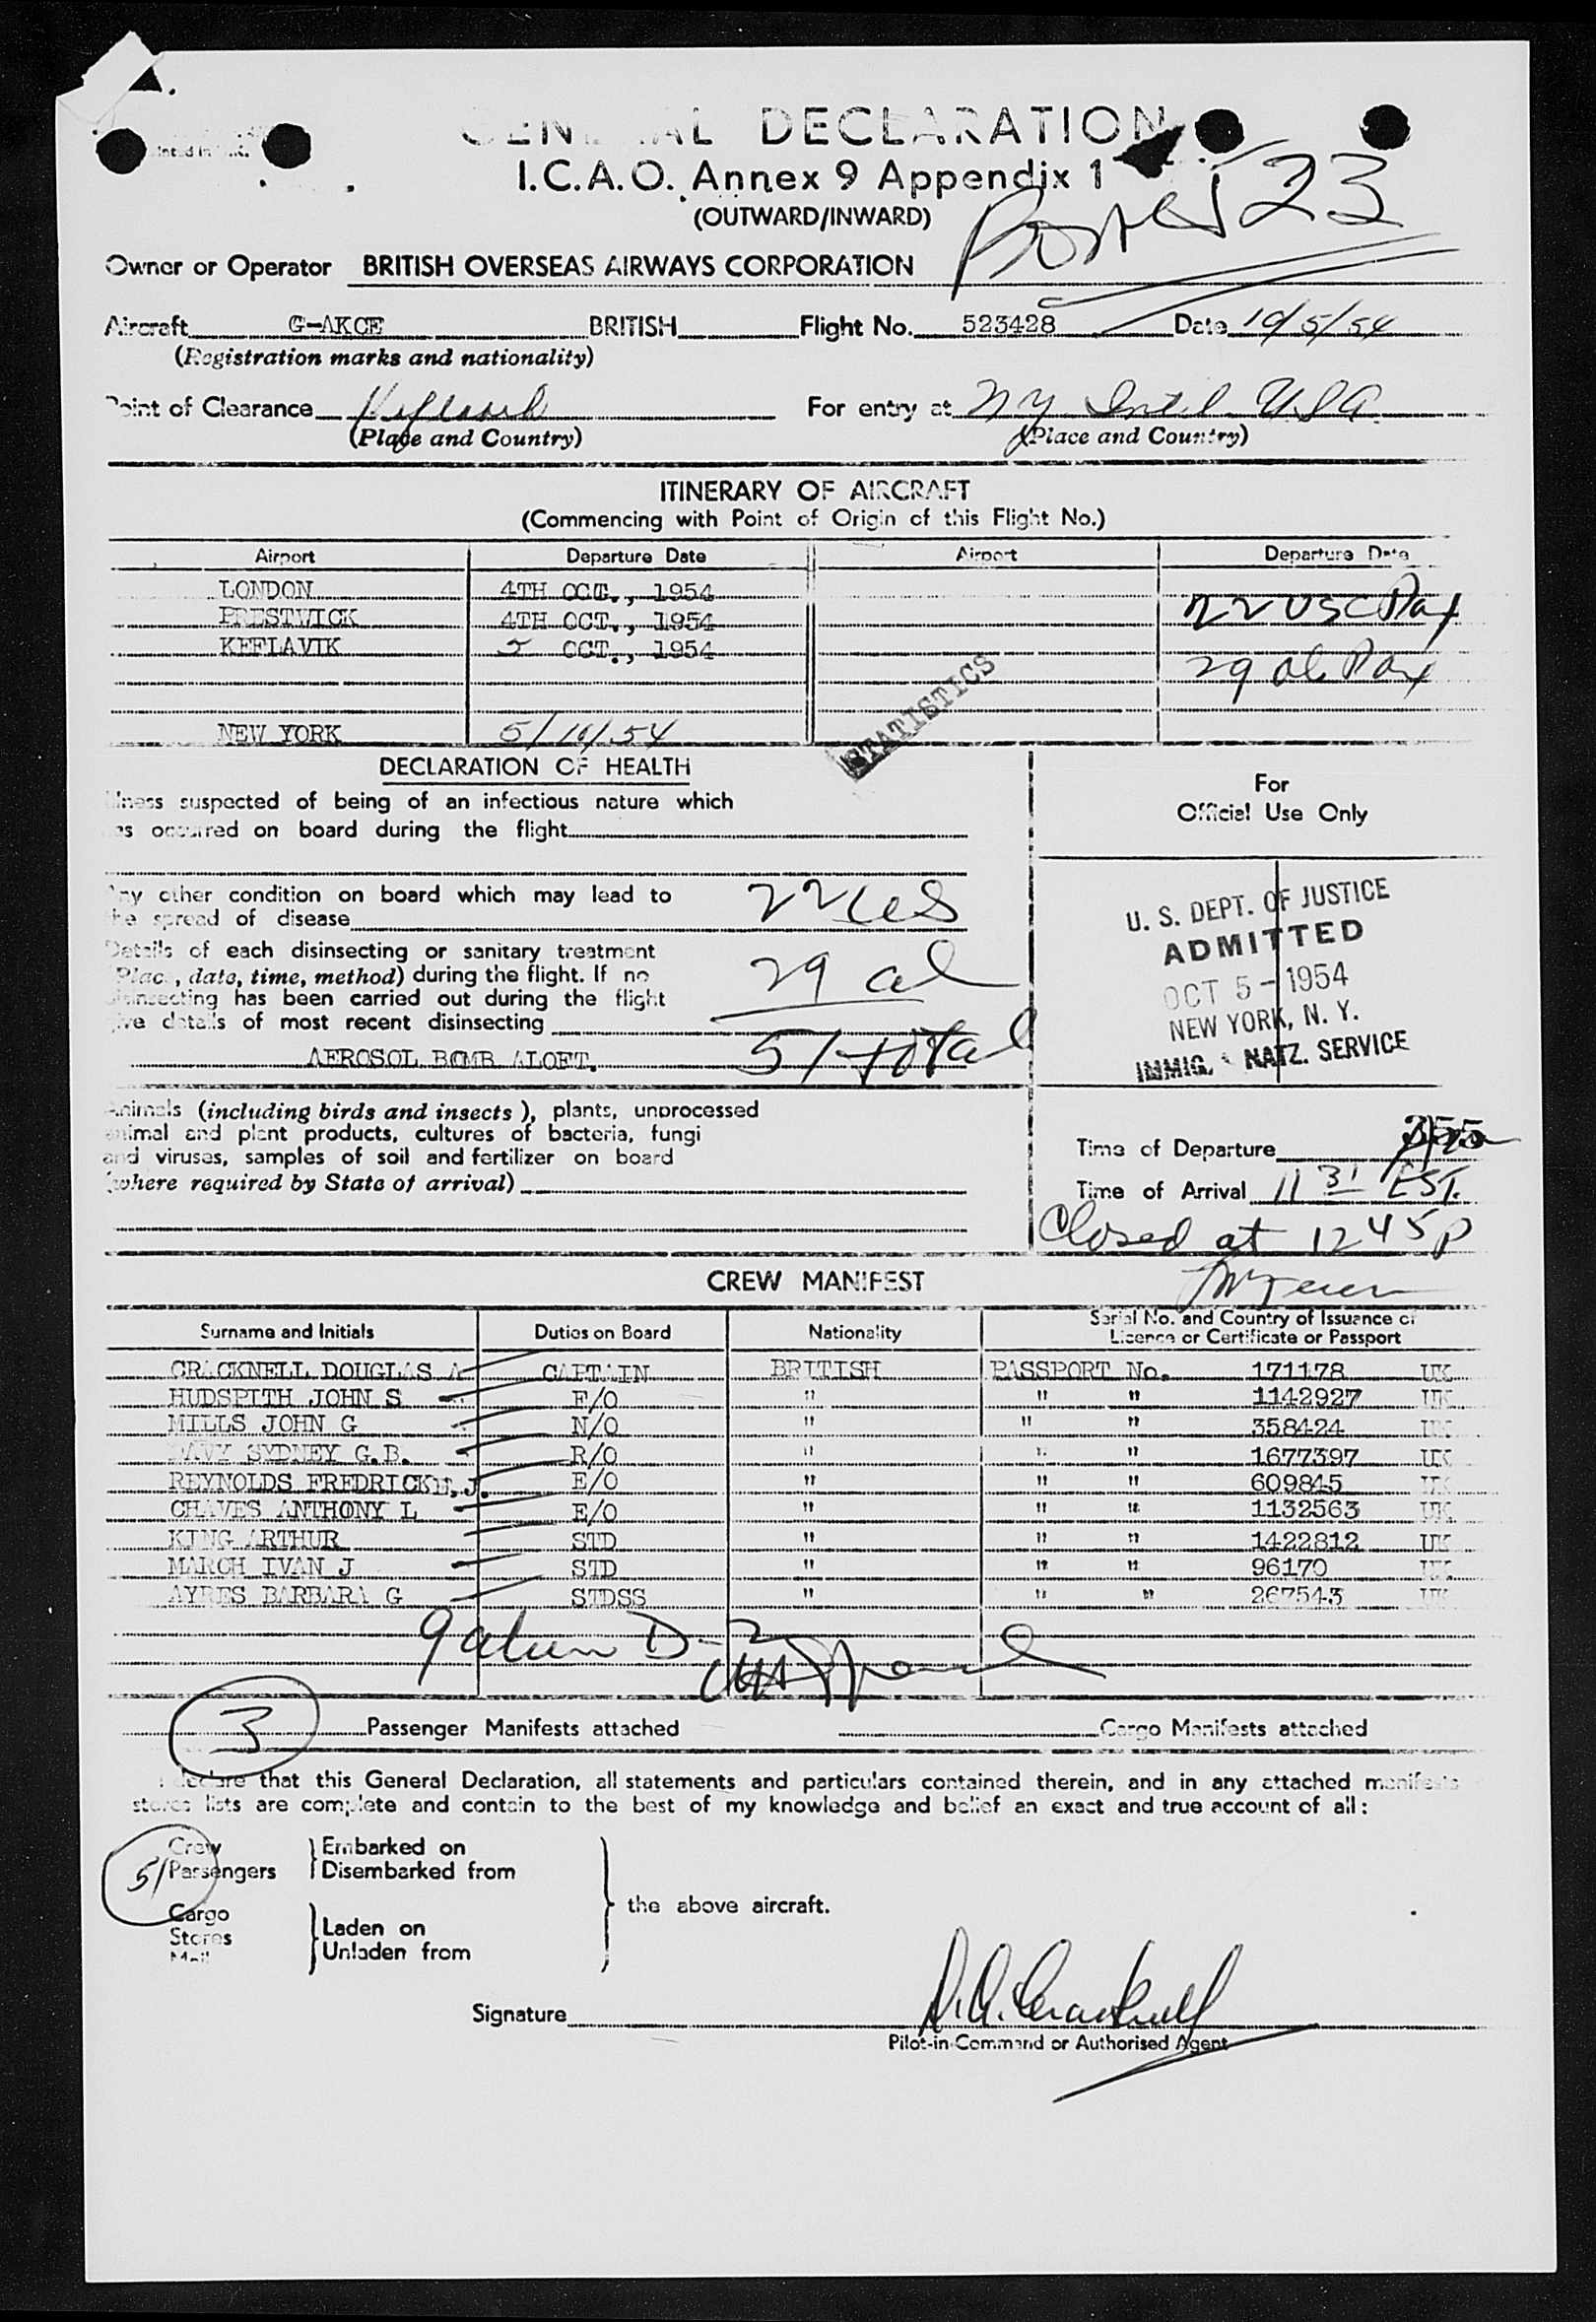 GENERAL DECLARATION
I.C.A.O. Annex 9 Appendix 1
(OUTWARD/INWARD)
23
Owner or Operator BRITISH OVERSEAS AIRWAYS CORPORATION
Aircraft G-AKCE BRITISH Flight No. 523428 Date 10/5/54
(Registration marks and nationality)
Point of Clearance Keflavik For entry at NY Intl USA
(Place and Country) (Place and Country)
ITINERARY OF AIRCRAFT
(Commencing with Point of Origin of this Flight No.)
Airport Departure Date Airport Departure Date
LONDON 4TH OCT., 1954
PRESTWICK 4TH OCT., 1954 22 USC Pax
KEFLAVIK 5 OCT., 1954 29 al Pax
STATISTICS
NEW YORK 5/10/54
DECLARATION OF HEALTH
Illness suspected of being of an infectious nature which
has occurred on board during the flight
For
Official Use Only
Any other condition on board which may lead to
the spread of disease
22 us
Details of each disinsecting or sanitary treatment
(Place, date, time, method) during the flight. If no
disinsecting has been carried out during the flight
give details of most recent disinsecting
29 al
AEROSOL BOMB ALOFT. 51 total
U. S. DEPT. OF JUSTICE
ADMITTED
OCT 5 - 1954
NEW YORK, N. Y.
IMMIG. & NATZ. SERVICE
Animals (including birds and insects), plants, unprocessed
animal and plant products, cultures of bacteria, fungi
and viruses, samples of soil and fertilizer on board
(where required by State of arrival)
Time of Departure
Time of Arrival 11 31 EST.
Closed at 12 45 p
CREW MANIFEST
Surname and Initials Duties on Board Nationality Serial No. and Country of Issuance of
Licence or Certificate or Passport
CRACKNELL DOUGLAS A CAPTAIN BRITISH PASSPORT No. 171178 UK
HUDSPITH JOHN S F/O " " " 1142927 UK
MILLS JOHN G N/O " " " 358424 UK
DAVY SYDNEY G.B. R/O " " " 1677397 UK
REYNOLDS FREDRICK E.J. E/O " " " 609845 UK
CHAVES ANTHONY L E/O " " " 1132563 UK
KING ARTHUR STD " " " 1422812 UK
MARCH IVAN J STD " " " 96170 UK
AYRES BARBARA G STDSS " " " 267543 UK
9 alien D-2
3 Passenger Manifests attached Cargo Manifests attached
I declare that this General Declaration, all statements and particulars contained therein, and in any attached manifests
stores lists are complete and contain to the best of my knowledge and belief an exact and true account of all:
Crew Embarked on
51 Passengers Disembarked from
the above aircraft.
Cargo
Stores Laden on
Mail Unladen from
Signature D.A. Cracknell
Pilot-in-Command or Authorised Agent